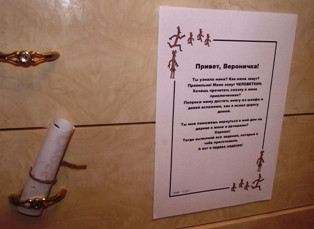 Привет, Вероничка!
Ты узнала меня? Как меня зовут?
Правильно! Меня зовут ЧЕЛОВЕТКИН.
Хочешь прочитать сказку о моих
приключениях?
Попроси маму достать книгу из шкафа и
давай вспомним, как я искал дорогу
домой.
Ты мне поможешь вернуться в мой дом на
дереве к жене и детишкам?
Хорошо!
Тогда выполняй все задания, которые я
тебе приготовил.